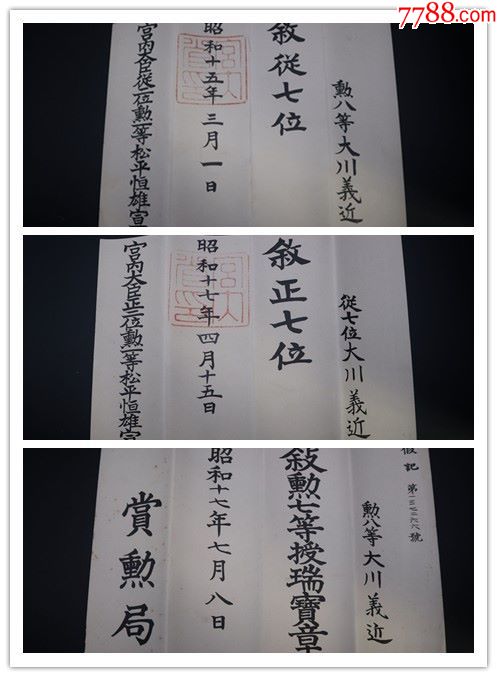 7788.com
勲八等大川義近
敘從七位
昭和十五年三月一日
宮內大臣從二位勲一等松平恒雄宣
從七位大川義近
敘正七位
昭和十七年四月十五日
宮內大臣正三位勲一等松平恒雄宣
假記
勲八等大川義近
敍勲七等授瑞寶章
昭和十七年七月八日
賞勲局